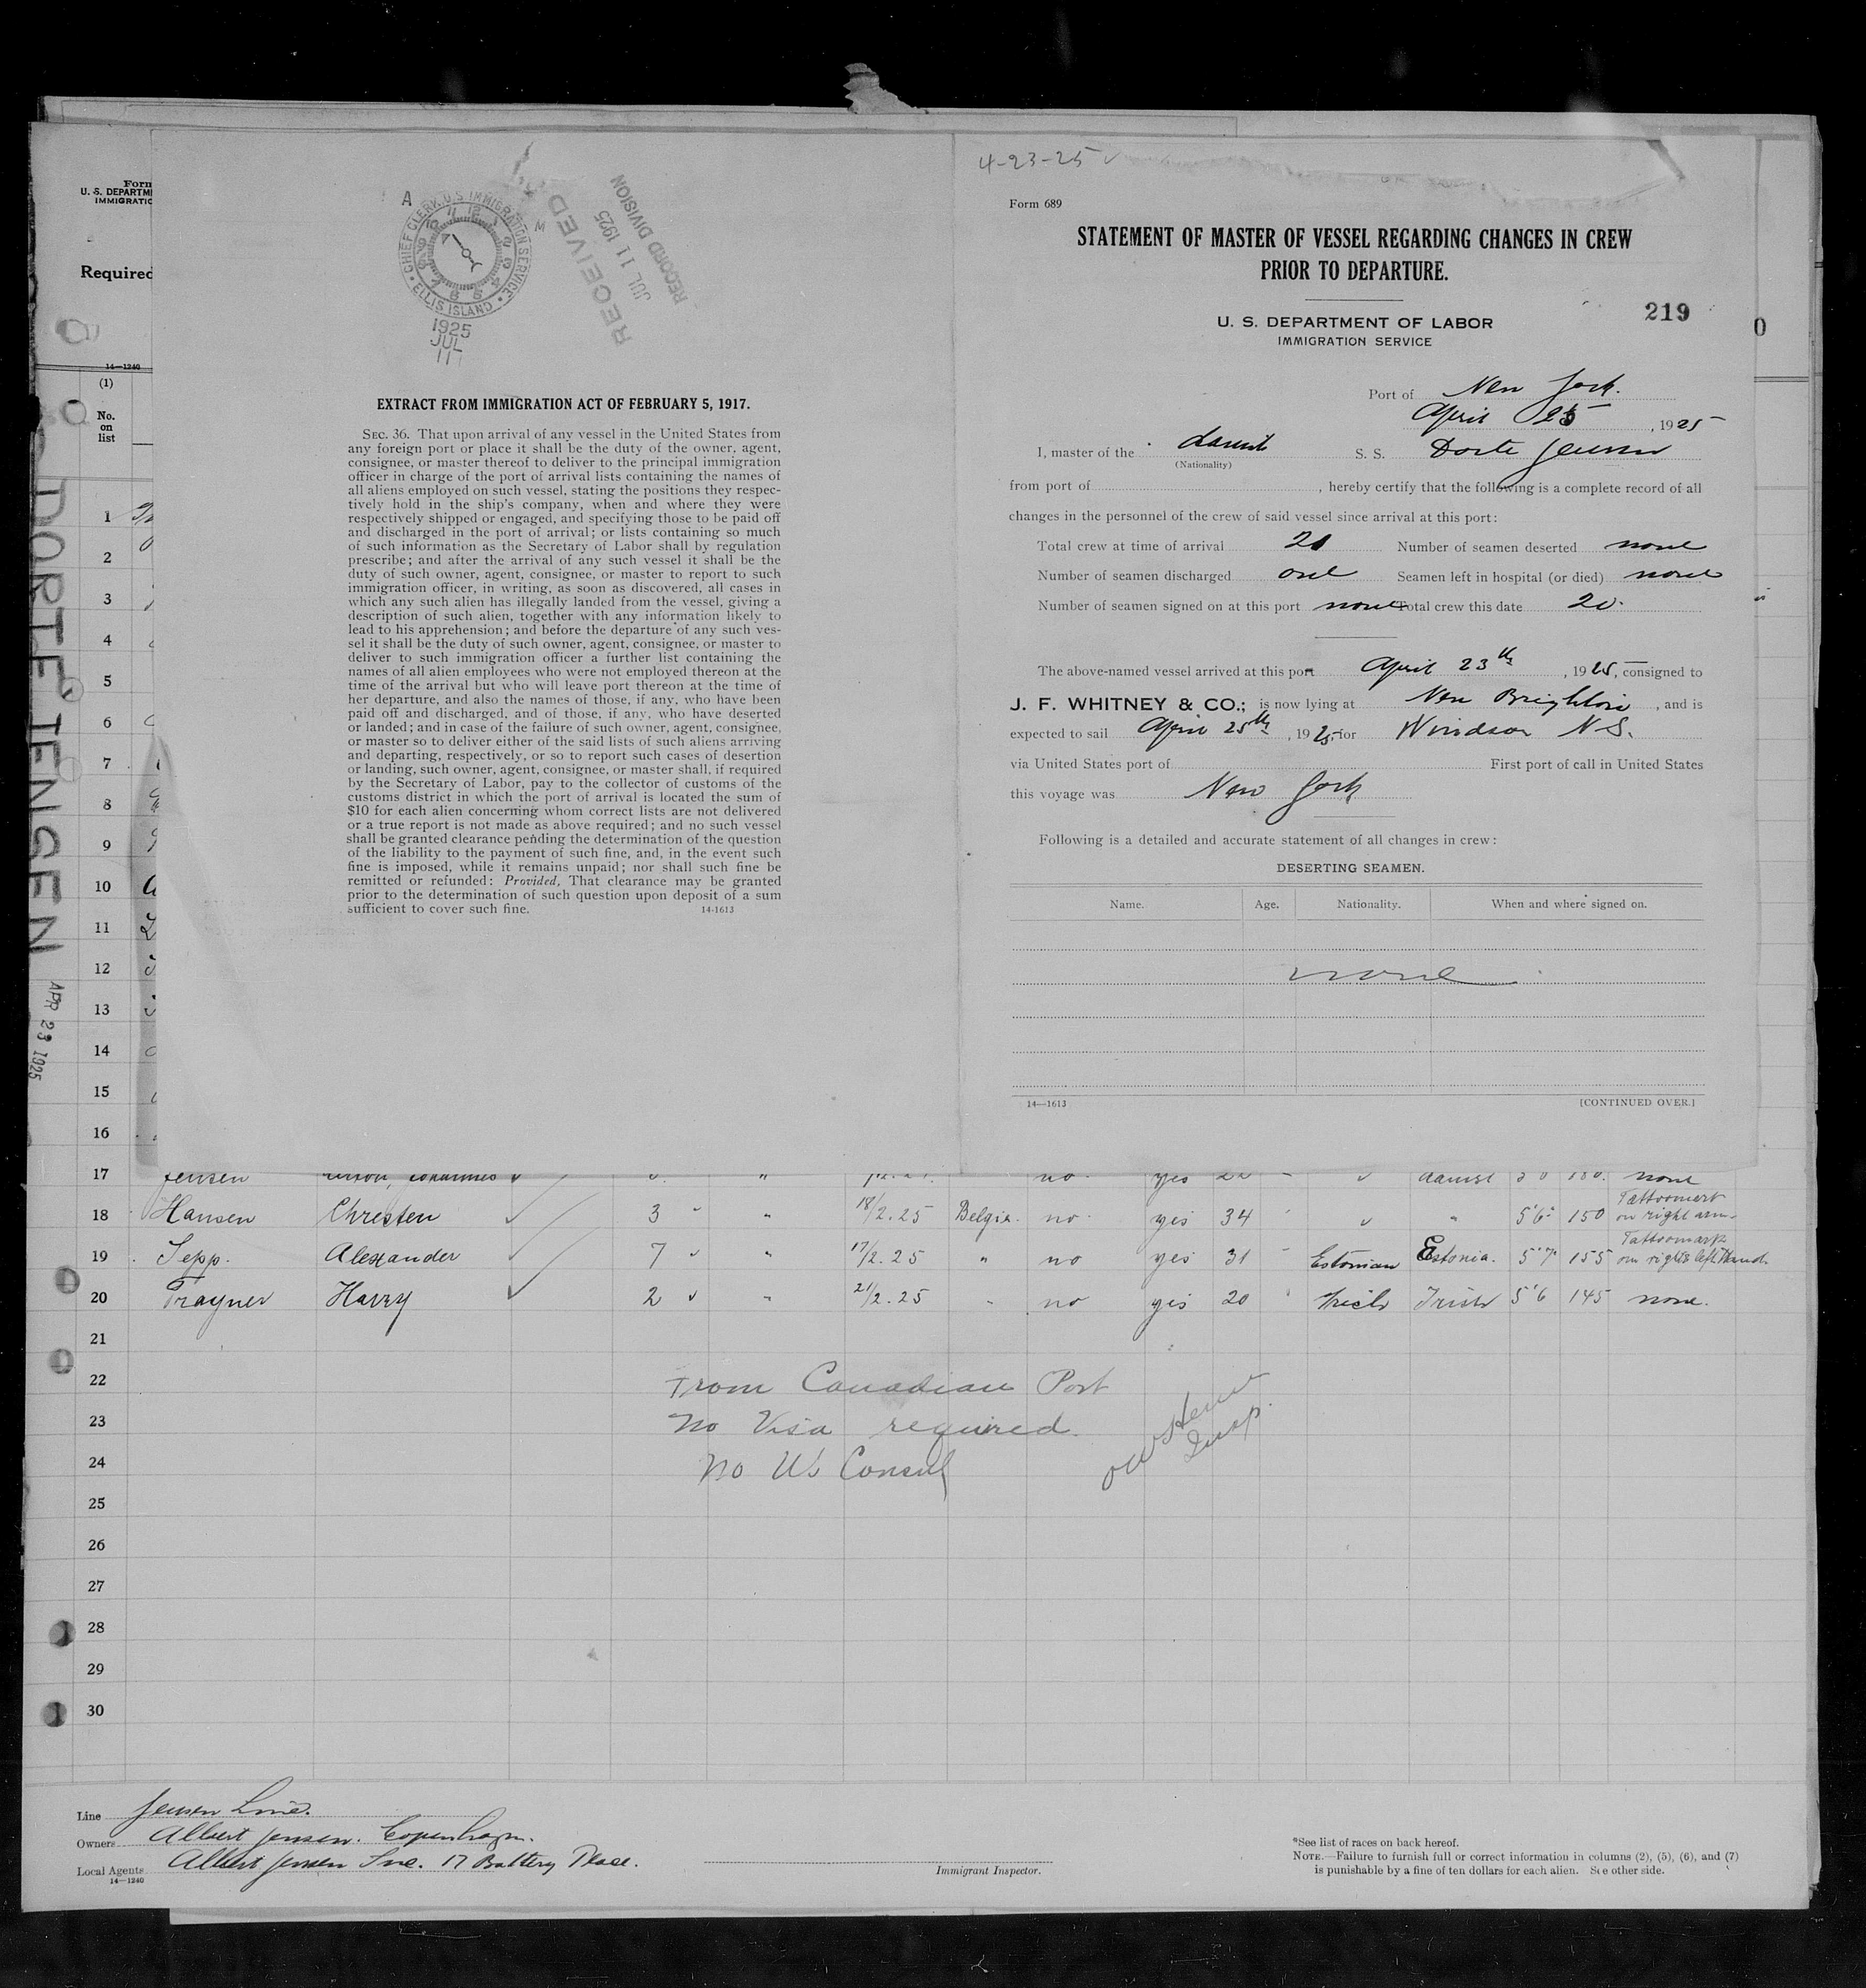 Form
U. S. DEPARTM
IMMIGRATIC
Required
14—1240
(1)
No.
on
list
DORTE JENSEN
APR 23 1925
A
M
CHIEF CLERK, U.S IMMIGRATION SERVICE
ELLIS ISLAND
1925
JUL
11
RECEIVED
JUL 11 1925
RECORD DIVISION
EXTRACT FROM IMMIGRATION ACT OF FEBRUARY 5, 1917.
SEC. 36. That upon arrival of any vessel in the United States from
any foreign port or place it shall be the duty of the owner, agent,
consignee, or master thereof to deliver to the principal immigration
officer in charge of the port of arrival lists containing the names of
all aliens employed on such vessel, stating the positions they respec-
tively hold in the ship's company, when and where they were
respectively shipped or engaged, and specifying those to be paid off
and discharged in the port of arrival; or lists containing so much
of such information as the Secretary of Labor shall by regulation
prescribe; and after the arrival of any such vessel it shall be the
duty of such owner, agent, consignee, or master to report to such
immigration officer, in writing, as soon as discovered, all cases in
which any such alien has illegally landed from the vessel, giving a
description of such alien, together with any information likely to
lead to his apprehension; and before the departure of any such ves-
sel it shall be the duty of such owner, agent, consignee, or master to
deliver to such immigration officer a further list containing the
names of all alien employees who were not employed thereon at the
time of the arrival but who will leave port thereon at the time of
her departure, and also the names of those, if any, who have been
paid off and discharged, and of those, if any, who have deserted
or landed; and in case of the failure of such owner, agent, consignee,
or master so to deliver either of the said lists of such aliens arriving
and departing, respectively, or so to report such cases of desertion
or landing, such owner, agent, consignee, or master shall, if required
by the Secretary of Labor, pay to the collector of customs of the
customs district in which the port of arrival is located the sum of
$10 for each alien concerning whom correct lists are not delivered
or a true report is not made as above required; and no such vessel
shall be granted clearance pending the determination of the question
of the liability to the payment of such fine, and, in the event such
fine is imposed, while it remains unpaid; nor shall such fine be
remitted or refunded: Provided, That clearance may be granted
prior to the determination of such question upon deposit of a sum
sufficient to cover such fine. 14-1613
4-23-25
Form 689
STATEMENT OF MASTER OF VESSEL REGARDING CHANGES IN CREW
PRIOR TO DEPARTURE.
219
U. S. DEPARTMENT OF LABOR
IMMIGRATION SERVICE
Port of New York.
April 25, 1925
I, master of the Danish S. S. Dorte Jensen
(Nationality)
from port of , hereby certify that the following is a complete record of all
changes in the personnel of the crew of said vessel since arrival at this port:
Total crew at time of arrival 21 Number of seamen deserted none
Number of seamen discharged one Seamen left in hospital (or died) none
Number of seamen signed on at this port none Total crew this date 20.
The above-named vessel arrived at this port April 23th, 1925, consigned to
J. F. WHITNEY & CO.; is now lying at New Brighton, and is
expected to sail April 25th, 1925, for Windsor N.S.
via United States port of First port of call in United States
this voyage was New York
Following is a detailed and accurate statement of all changes in crew:
DESERTING SEAMEN.
Name. Age. Nationality. When and where signed on.
none
14—1613 [CONTINUED OVER.]
1
2
3
4
5
6
7
8
9
10
11
12
13
14
15
16
17 Jensen no yes none
18 Hansen Christen 3 " " 18/2.25 Belgie. no yes 34 " 5'6" 150 Tattoomark on right arm
19 Sepp. Alexander 7 " " 17/2.25 " no yes 31 Estonian Estonia. 5'7" 155 Tattoomark on right & left Hand.
20 Trayner Harry 2 " " 21/2.25 " no yes 20 " Irish Irish 5'6 145 none.
21
22 From Canadian Port
23 No Visa required.
24 No US Consul
Insp.
25
26
27
28
29
30
Line Jensen Line.
Owners Albert Jensen. Copenhagen.
Local Agents Albert Jensen Inc. 17 Battery Place.
14—1240
Immigrant Inspector.
*See list of races on back hereof.
NOTE.—Failure to furnish full or correct information in columns (2), (5), (6), and (7)
is punishable by a fine of ten dollars for each alien. See other side.